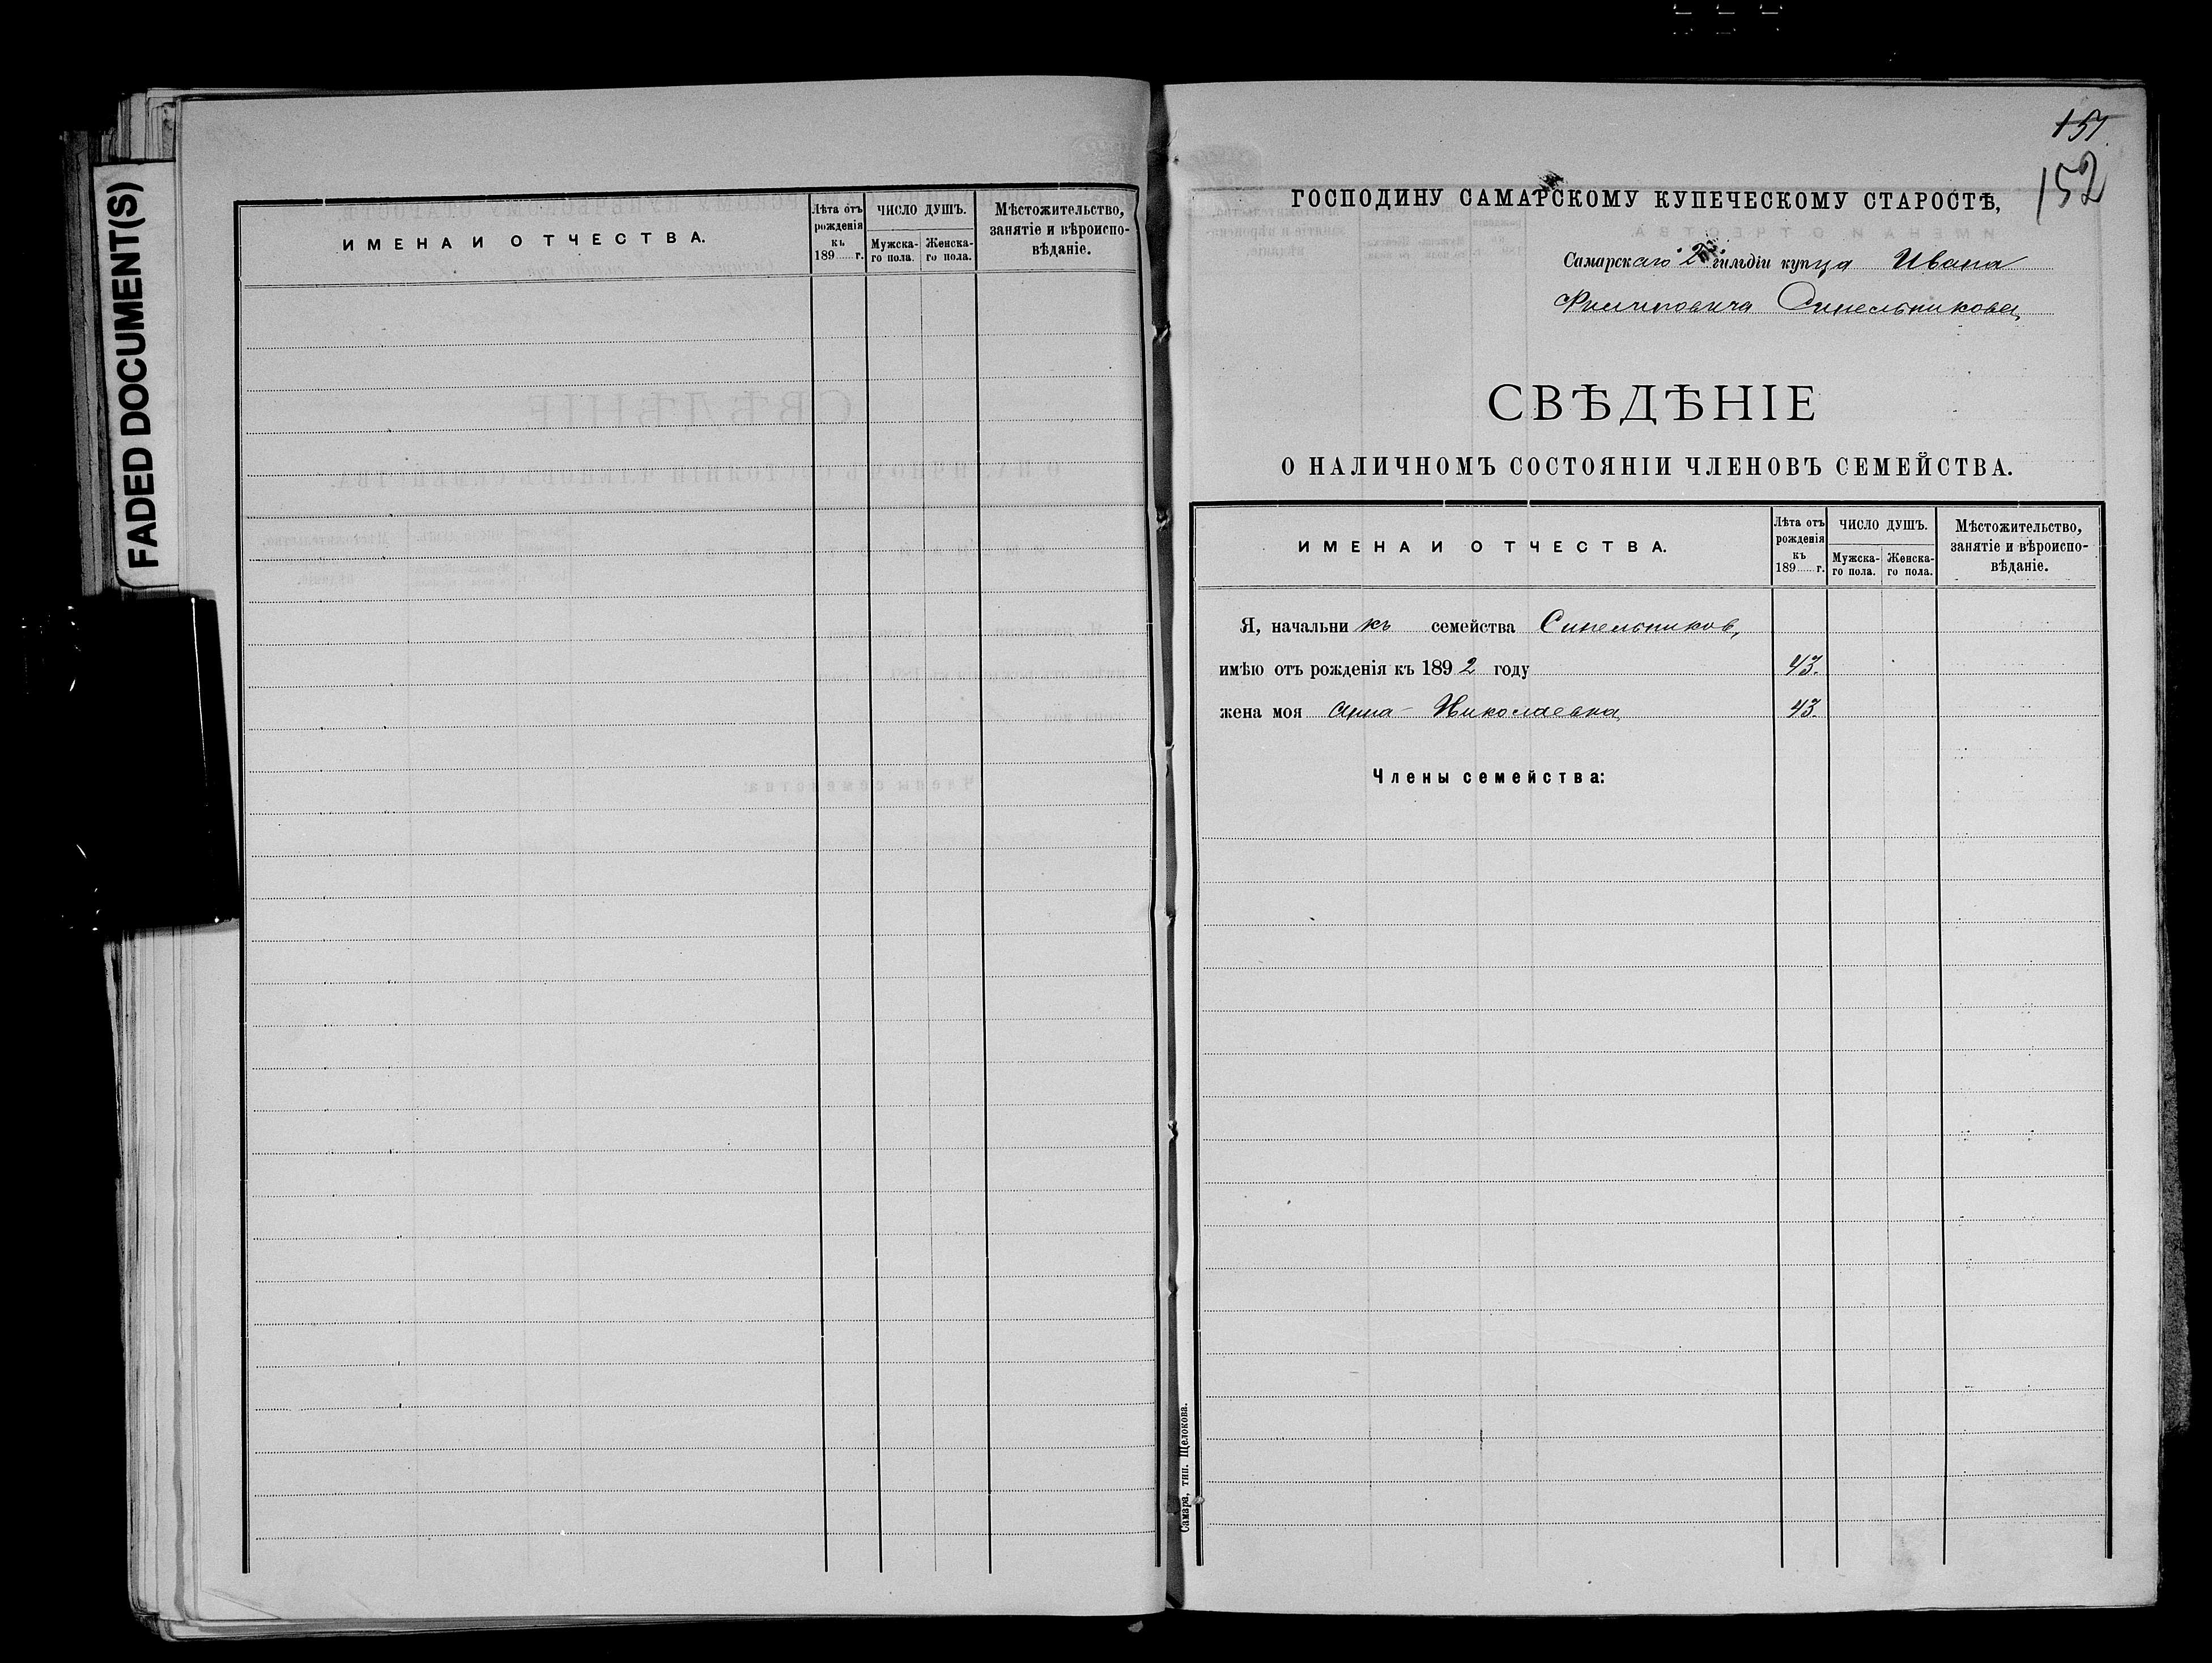 FADED DOCUMENT(S)
ИМЕНА И ОТЧЕСТВА.
Лѣта отъ рожденія къ 189 г.
ЧИСЛО ДУШЪ.
Мужска-го пола.
Женска-го пола.
Мѣстожительство, занятіе и вѣроиспо-вѣданіе.
151.
152
ГОСПОДИНУ САМАРСКОМУ КУПЕЧЕСКОМУ СТАРОСТѢ,
Самарскаго 2й гильдіи купца Ивана
Филиповича Синельникова,
СВѢДѢНІЕ
О НАЛИЧНОМЪ СОСТОЯНІИ ЧЛЕНОВЪ СЕМЕЙСТВА.
ИМЕНА И ОТЧЕСТВА.
Лѣта отъ рожденія къ 189 г.
ЧИСЛО ДУШЪ.
Мужска-го пола.
Женска-го пола.
Мѣстожительство, занятіе и вѣроиспо-вѣданіе.
Я, начальникъ семейства Синельников,
имѣю отъ рожденія къ 1892 году 43.
жена моя Анна Николаевна 43.
Члены семейства:
Самара, тип. Щелокова.